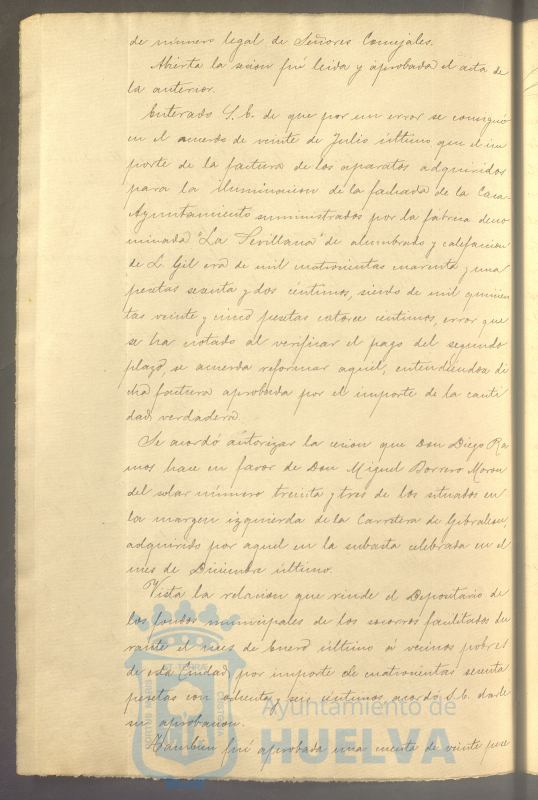 de número legal de Señores Concejales.
Abierta la sesion fué leida y aprobada el acta de
la anterior.
Enterado S.E. de que por un error se consignó
en el acuerdo de veinte de Julio último que el im
porte de la factura de los aparatos adquiridos
para la iluminacion de la fachada de la Casa-
Ayuntamiento suministrados por la fabrica deno
minada "La Sevillana" de alumbrado y calefaccion
de L. Gil era de mil cuatrocientas cuarenta y una
pesetas sesenta y dos céntimos, siendo de mil quinien
tas veinte y cinco pesetas catorce céntimos, error que
se ha notado al verificar el pago del segundo
plazo, se acuerda reformar aquél, entendiéndose di
cha factura aprobada por el importe de la canti
dad verdadera.
Se acordó autorizar la cesion que Don Diego Ra
mos hace en favor de Don Miguel Borrero Moron
del solar número treinta y tres de los situados en
la margen izquierda de la Carretera de Gibraleon,
adquirido por aquel en la subasta celebrada en el
mes de Diciembre último.
Vista la relacion que rinde el Depositario de
los fondos municipales de los socorros facilitados du
rante el mes de Enero último á vecinos pobres
de esta Ciudad, por importe de cuatrocientas sesenta
pesetas con ochenta y seis céntimos, acordó S.E. darle
su aprobacion.
Tambien fué aprobada una cuenta de veinte pese
Ayuntamiento de
HUELVA